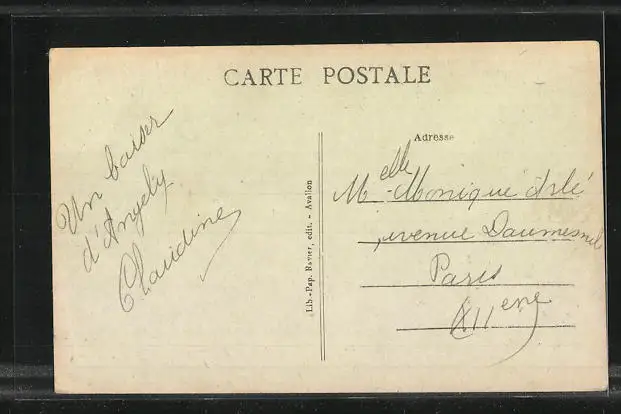 CARTE POSTALE
Un baiser
d'Angely
Claudine
Lib.-Pap. Ravier, edit. - Avallon
Adresse
Melle Monique Arlé
, avenue Daumesnil
Paris
XIIeme